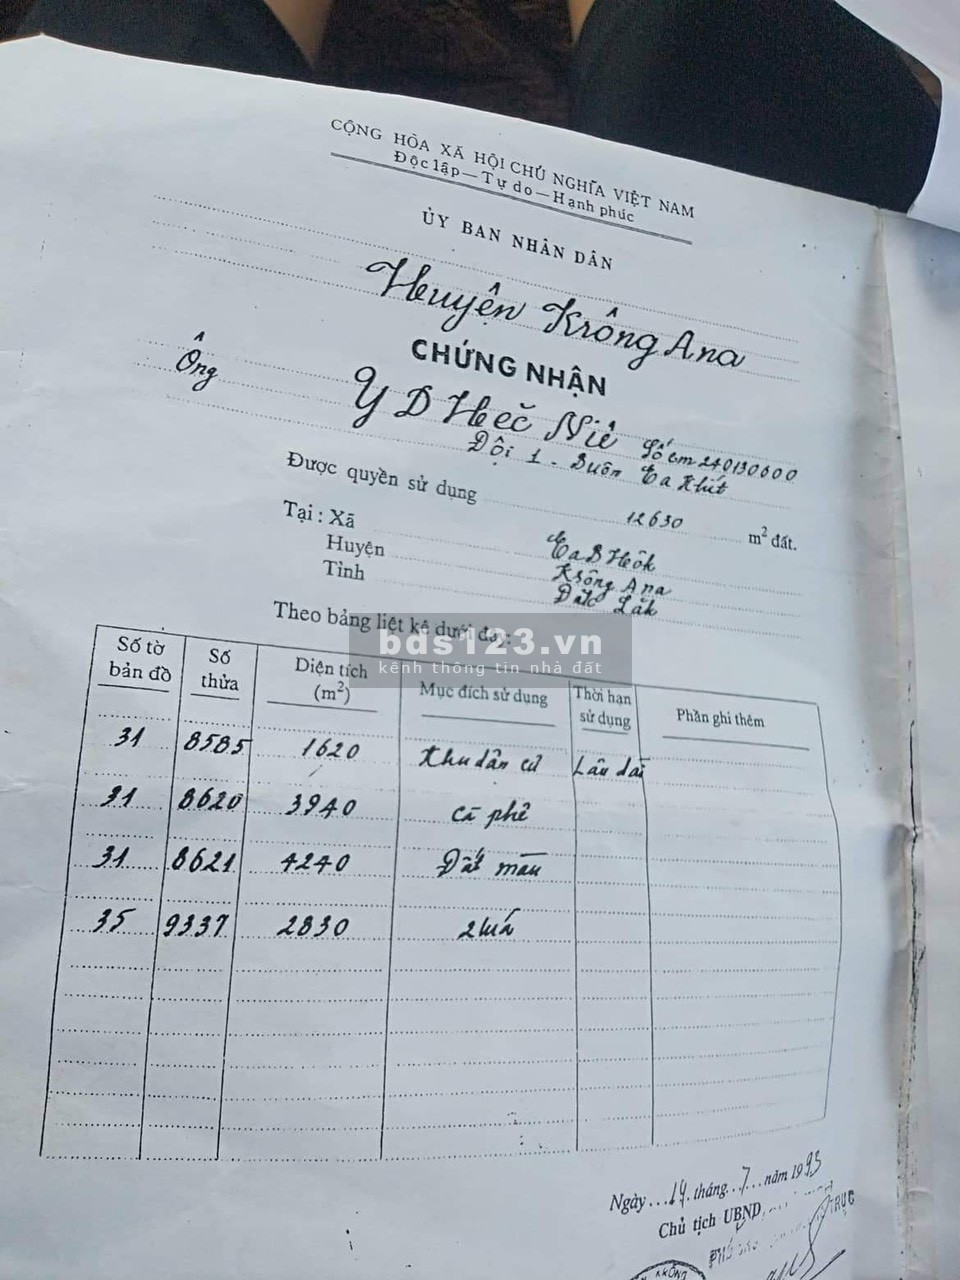 CỘNG HÒA XÃ HỘI CHỦ NGHĨA VIỆT NAM
Độc lập — Tự do — Hạnh phúc
ỦY BAN NHÂN DÂN
Huyện Krông Ana
CHỨNG NHẬN
Ông Y D Heč Niê Số cm 240130600
Đội 1 - Buôn Ea Khít
Được quyền sử dụng 12630 m² đất.
Tại : Xã Ea BHôk
Huyện Krông Ana
Tỉnh Đăk Lăk
Theo bảng liệt kê dưới đây:
bds123.vn
kênh thông tin nhà đất
Số tờ bản đồ Số thửa Diện tích (m²) Mục đích sử dụng Thời hạn sử dụng Phần ghi thêm
31 8585 1620 Khu dân cư Lâu dài
31 8620 3940 Cà phê
31 8621 4240 Đất màu
35 9337 2830 2 lúa
Ngày 14 tháng 7 năm 1993
Chủ tịch UBND
TRỰC
KRÔNG